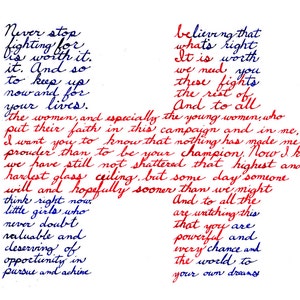 Never stop believing that
fighting for what's right
is worth it. It is worth
it. And so we need you
to keep up these fights
now and for the rest of
your lives. And to all
the women, and especially the young women, who
put their faith in this campaign and in me,
I want you to know that nothing has made me
prouder than to be your champion. Now I k
we have still not shattered that highest and
hardest glass ceiling, but some day someone
will and hopefully sooner than we might
think right now. And to all the
little girls who are watching this
never doubt that you are
valuable and powerful and
deserving of every chance and
opportunity in the world to
pursue and achieve your own dreams